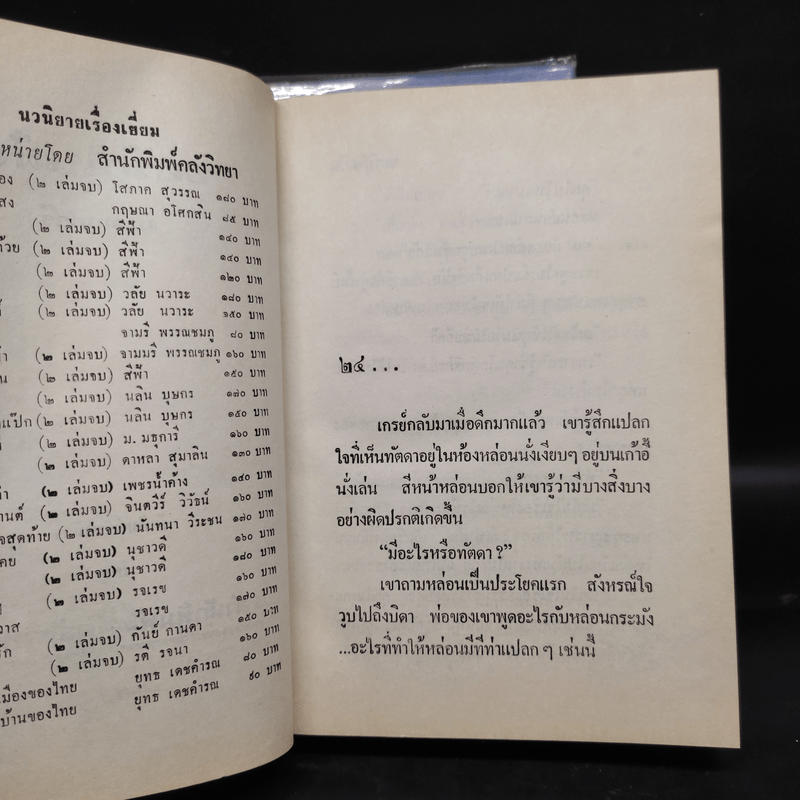 นวนิยายเรื่องเยี่ยม
หน่ายโดย สำนักพิมพ์คลังวิทยา
อง (๒ เล่มจบ) โสภาค สุวรรณ ๑๘๐ บาท
สง กฤษณา อโศกสิน ๘๕ บาท
(๒ เล่มจบ) สีฟ้า ๑๔๐ บาท
ด้วย (๒ เล่มจบ) สีฟ้า ๑๔๐ บาท
(๒ เล่มจบ) สีฟ้า ๑๒๐ บาท
(๒ เล่มจบ) วลัย นวาระ ๑๘๐ บาท
(๒ เล่มจบ) วลัย นวาระ ๑๕๐ บาท
จามรี พรรณชมภู ๘๐ บาท
(๒ เล่มจบ) จามมรี พรรณชมภู ๑๖๐ บาท
น (๒ เล่มจบ) สีฟ้า ๑๕๐ บาท
(๒ เล่มจบ) นลิน บุษกร ๑๗๐ บาท
แป๊ก (๒ เล่มจบ) นลิน บุษกร ๑๕๐ บาท
(๒ เล่มจบ) ม. มธุการี ๑๖๐ บาท
(๒ เล่มจบ) ดาหลา สุมาลิน ๑๓๐ บาท
(๒ เล่มจบ) เพชรน้ำค้าง ๑๔๐ บาท
านต์ (๒ เล่มจบ) จินตวีร์ วิวัธน์ ๑๖๐ บาท
จสุดท้าย (๒ เล่มจบ) นันทนา วีระชน ๑๗๐ บาท
คย (๒ เล่มจบ) นุชาวดี ๑๖๐ บาท
(๒ เล่มจบ) นุชาวดี ๑๘๐ บาท
(๒ เล่มจบ) รจเรข ๑๖๐ บาท
วาส รจเรข ๑๗๐ บาท
รัก (๒ เล่มจบ) กันย์ กานดา ๑๕๐ บาท
(๒ เล่มจบ) รตี รจนา ๑๖๐ บาท
เมืองของไทย ยุทธ เดชคำรณ ๘๐ บาท
บ้านของไทย ยุทธ เดชคำรณ ๙๐ บาท
๒๔...
เกรย์กลับมาเมื่อดึกมากแล้ว เขารู้สึกแปลก
ใจที่เห็นทัตดาอยู่ในห้องหล่อนนั่งเงียบๆ อยู่บนเก้าอี้
นั่งเล่น สีหน้าหล่อนบอกให้เขารู้ว่ามีบางสิ่งบาง
อย่างผิดปรกติเกิดขึ้น
“มีอะไรหรือทัตดา?”
เขาถามหล่อนเป็นประโยคแรก สังหรณ์ใจ
วูบไปถึงบิดา พ่อของเขาพูดอะไรกับหล่อนกระมัง
...อะไรที่ทำให้หล่อนมีทีท่าแปลก ๆ เช่นนี้